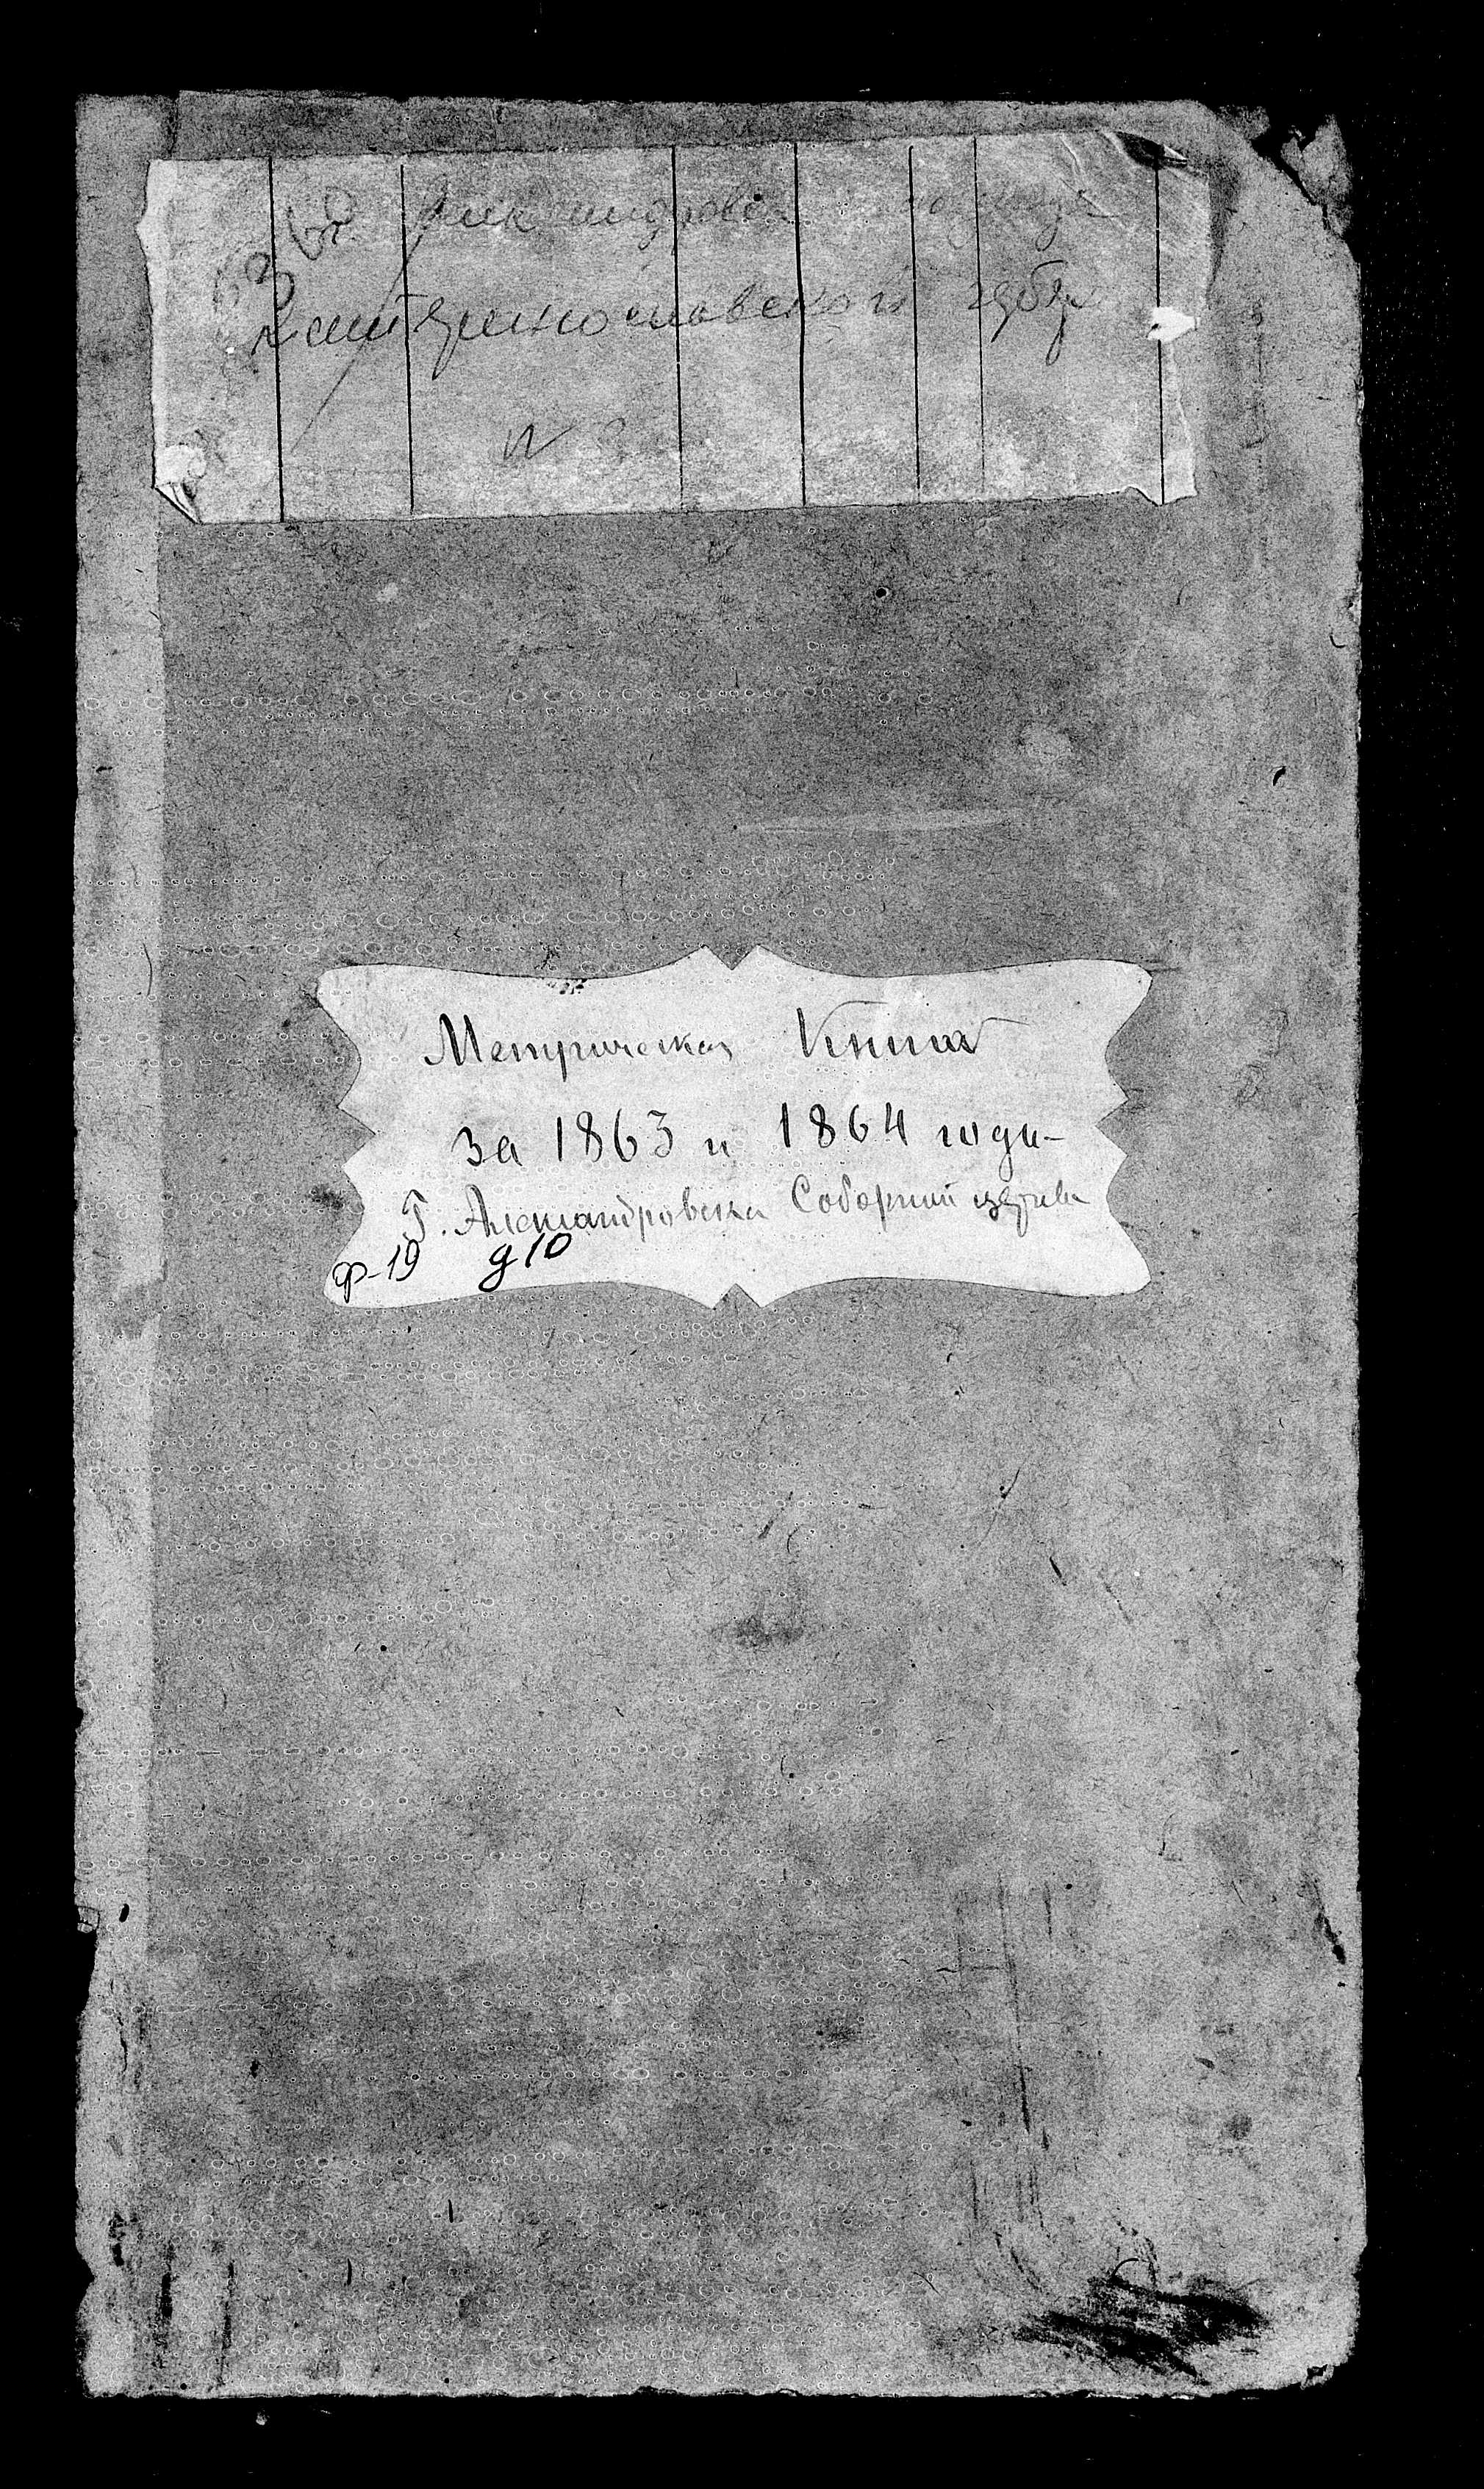 Екатеринославской губер
N
Метрическая Книга
за 1863 и 1864 годы
Г. Александровска Соборной церкви
ф-19 д10